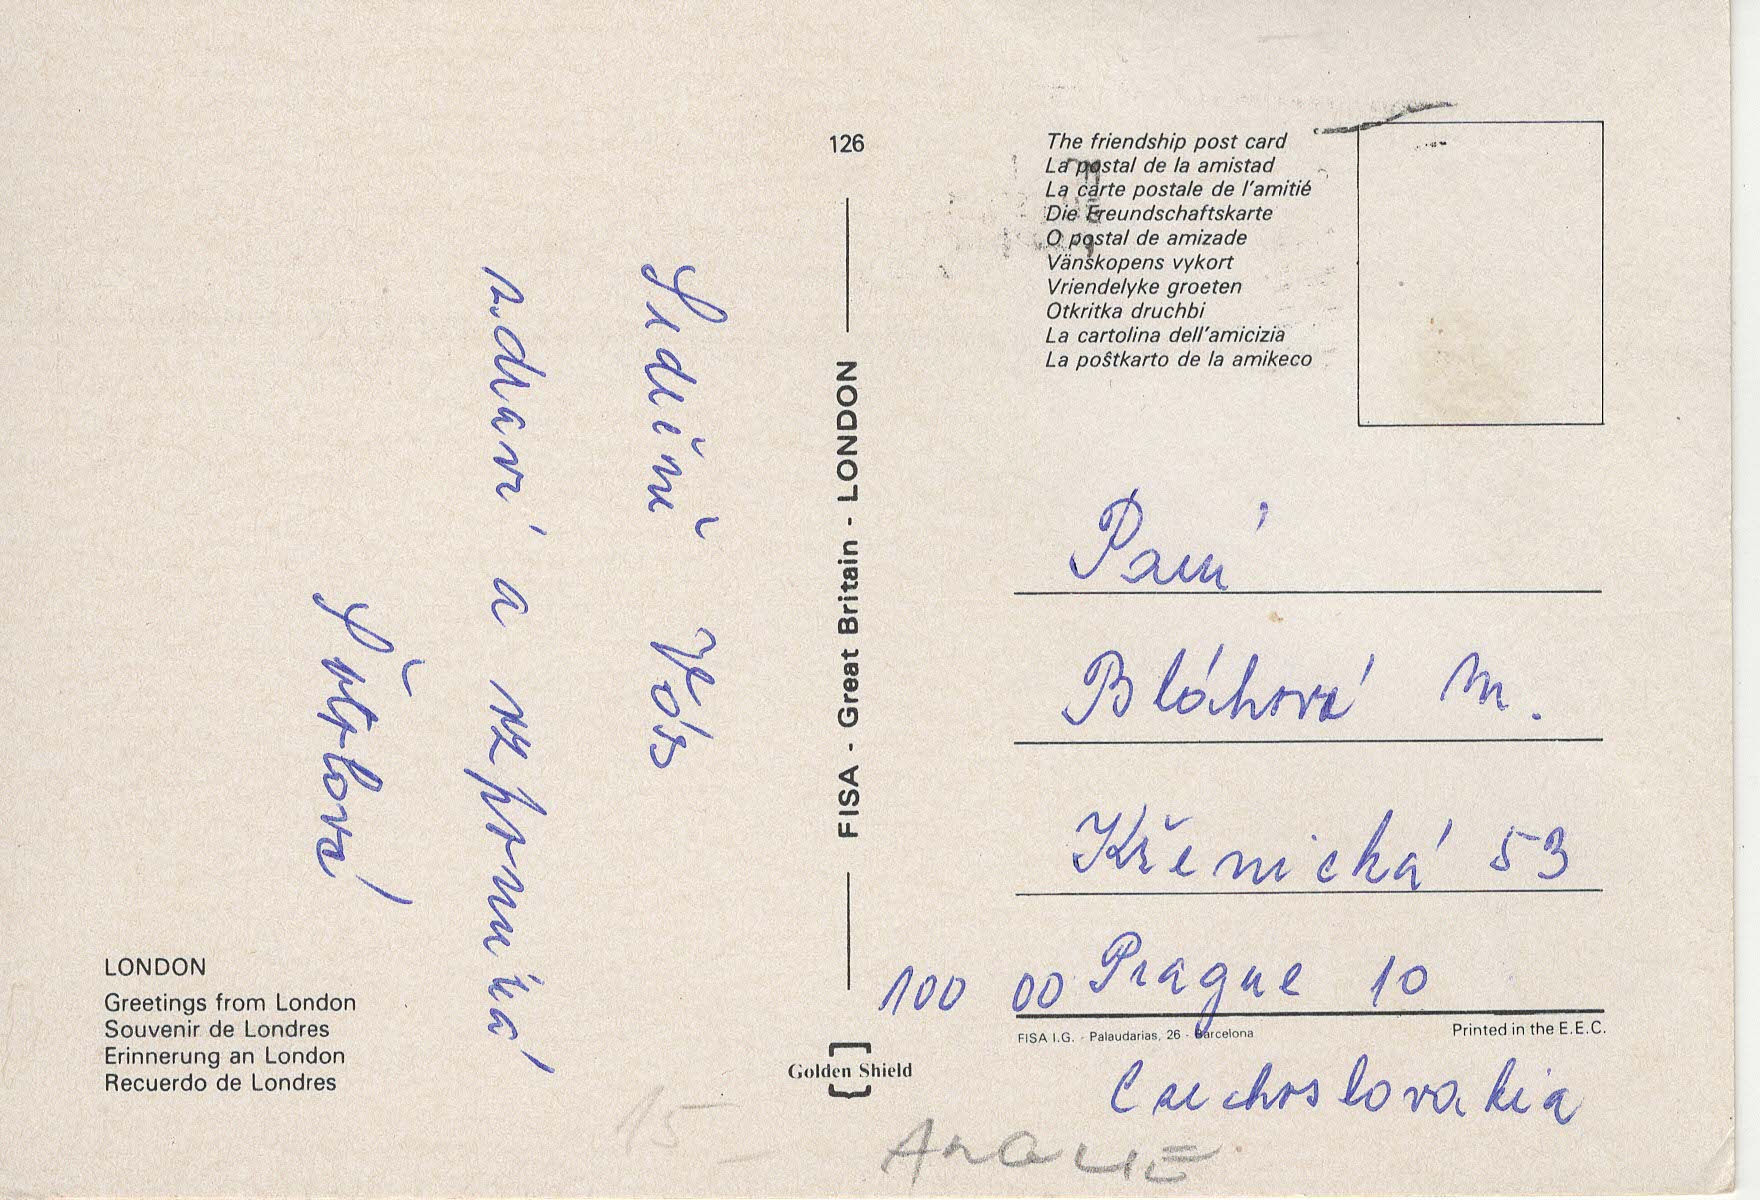 126
The friendship post card
La postal de la amistad
La carte postale de l'amitié
Die Freundschaftskarte
O postal de amizade
Vänskopens vykort
Vriendelyke groeten
Otkritka druchbi
La cartolina dell'amicizia
La poŝtkarto de la amikeco
Srdečně Vás
zdraví a vzpomíná
FISA - Great Britain - LONDON
Paní
Bláhová M.
Křenická 53
100 00 Prague 10
Czechoslovakia
LONDON
Greetings from London
Souvenir de Londres
Erinnerung an London
Recuerdo de Londres
FISA I.G. - Palaudarias, 26 - Barcelona
Printed in the E.E.C.
Golden Shield
15 -
ANGLIE